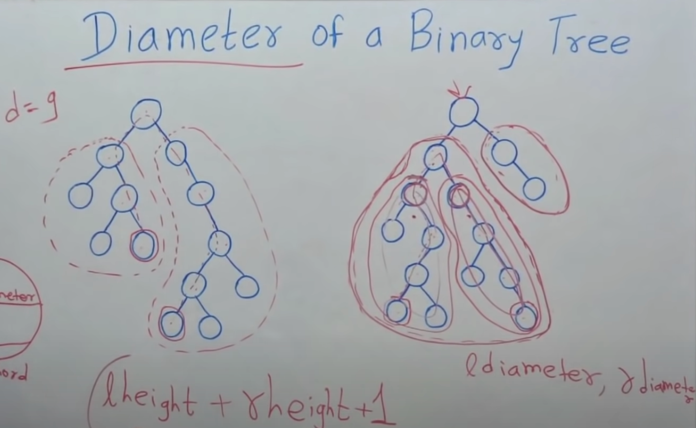 Diameter of a Binary Tree
d=9
meter
ord
(lheight + rheight+1
ldiameter, rdiameter